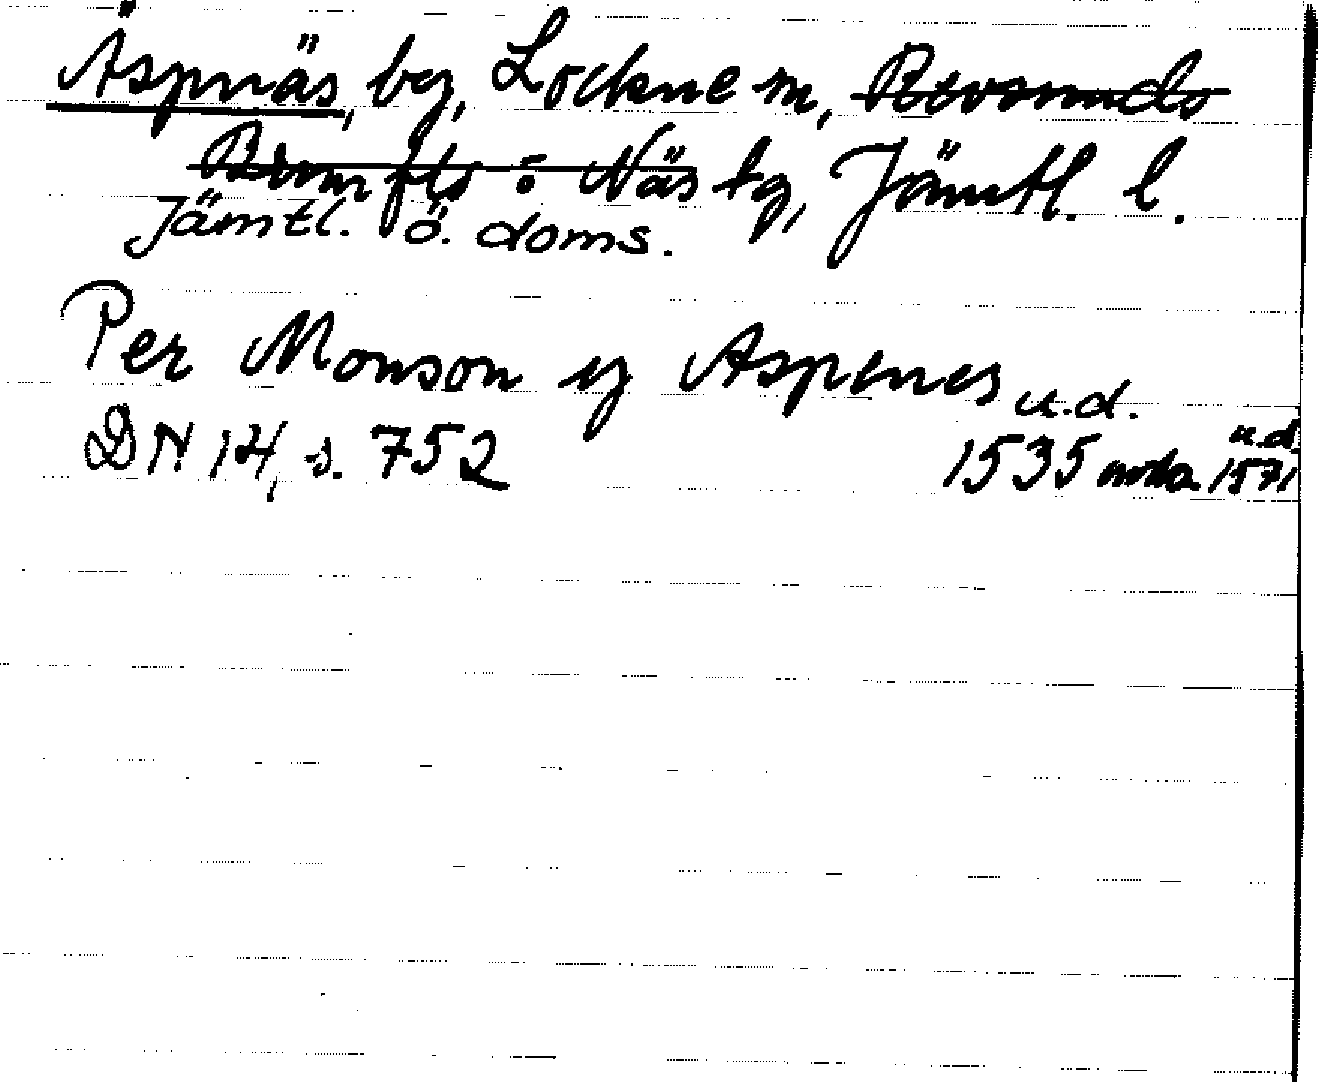 Åspnäs, by, Lockne sn, Revsunds
Brunflo o Näs tg, Jämtl. l.
Jämtl. ö. doms.
Per Monson y Aspenes u.d.
DN 14, s. 752 1535 u.d. 1571